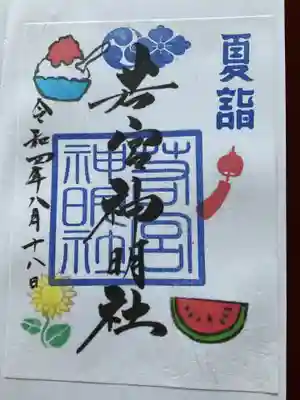 夏詣
若宮神明社
若宮
神明社
令和四年八月十八日